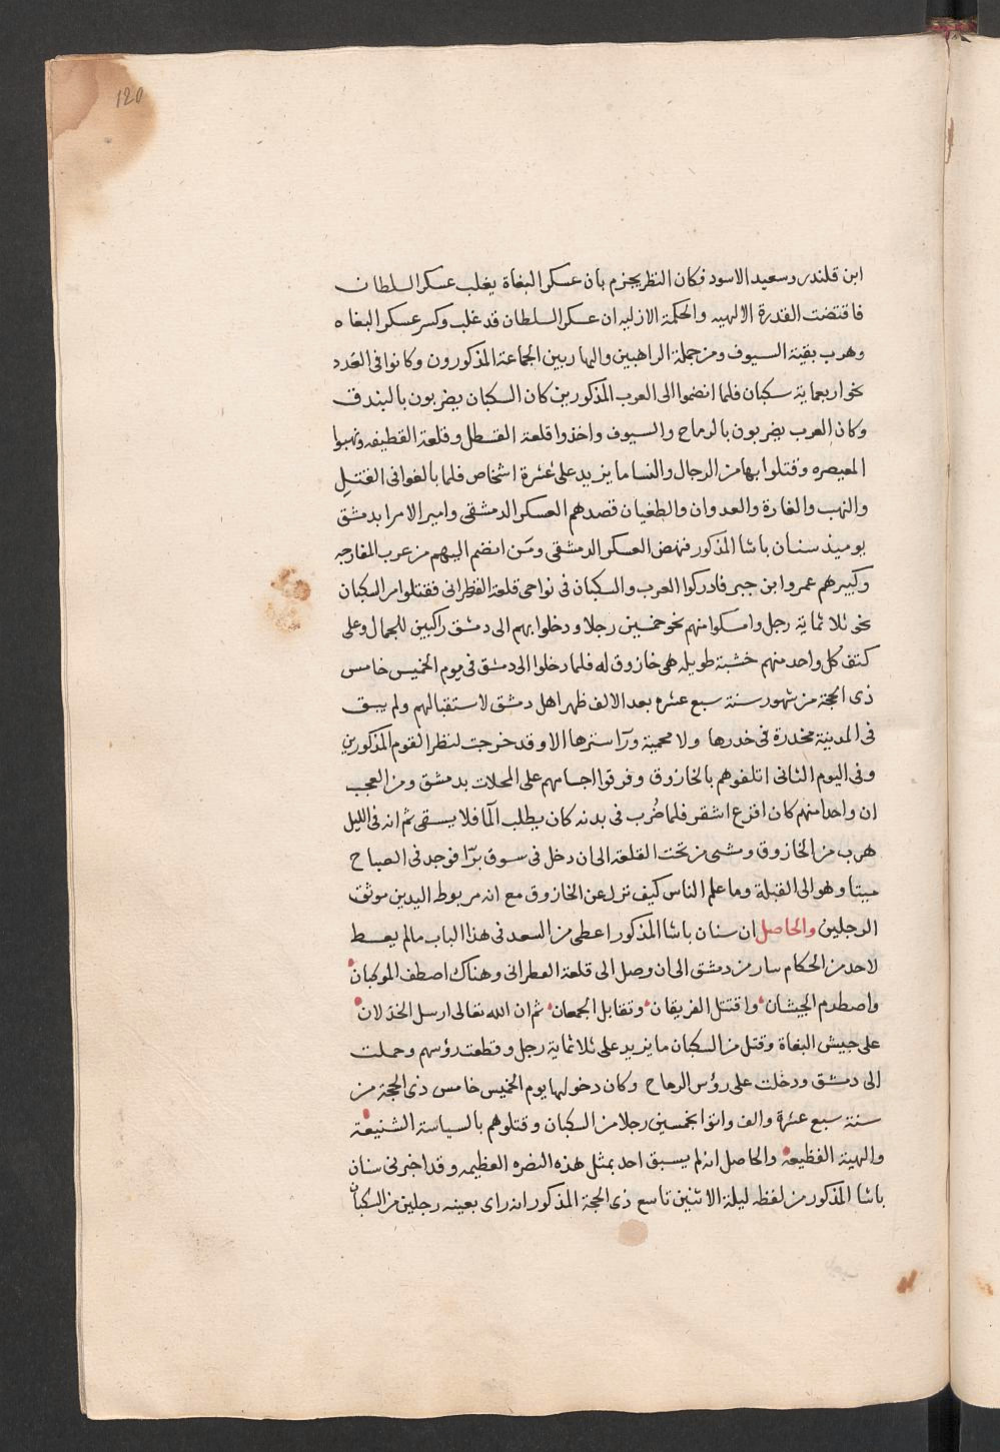 120
ابن قلندر وسعيد الاسود فكان النظر يجزم بان عسكر البغاة يغلب عسكر السلطان
فاقتضت القدرة الالهيه والحكمة الازليه ان عسكر السلطان قد غلب وكسر عسكر البغاه
وهرب بقية السيوف ومن جملة الراهبين والهاربين الجماعة المذكورون وكانوا فى العدد
نحو اربعماية سكبان فلما انضموا الى العرب المذكورين كان السكبان يضربون بالبندق
وكان العرب يضربون بالرماح والسيوف واخذوا قلعة القسطل وقلعة القطيفه ونهبوا
المعيصره وقتلوا بها من الرجال والنسا ما يزيد على عشرة اشخاص فلما بالغوا فى القتل
والنهب والغارة والعدوان والطغيان قصدهم العسكر الدمشقى وامير الامرا بدمشق
يوميذ سنان باشا المذكور فنهض العسكر الدمشقى ومن انضم اليهم من عرب المفارجه
وكبيرهم عمرو ابن جبر فادركوا العرب والسكبان فى نواحى قلعة القطرانى فقتلوا من السكبان
نحو ثلاثماية رجل وامسكوا منهم نحو خمسين رجلا ودخلوا بهم الى دمشق راكبين للجمال وعلى
كتف كل واحد منهم خشبة طويله هى خازوق له فلما دخلوا الى دمشق فى يوم الخميس خامس
ذى الحجة من شهور سنة سبع عشره بعد الالف ظهر اهل دمشق لاستقبالهم ولم يبق
فى المدينة مخدرة فى خدرها ولا محمية ورآ سترها الا وقد خرجت لنظر القوم المذكورين
وفى اليوم الثانى اتلفوهم بالخازوق وفرقوا اجسامهم على المحلات بدمشق ومن العجب
ان واحدا منهم كان اقرع اشقر فلما ضرب فى بدنه كان يطلب المآ فلا يسقى ثم انه فى الليل
هرب من الخازوق ومشى من تحت القلعة الى ان دخل فى سوق برّا فوجد فى الصباح
ميتا وهو الى القبلة وما علم الناس كيف نزل عن الخازوق مع انه مربوط اليدين موثق
الرجلين والحاصل ان سنان باشا المذكور اعطى من السعد فى هذا الباب مالم يعط
لاحد من الحكام سار من دمشق الى ان وصل الى قلعة القطرانى وهناك اصطف الموكبان
واصطدم الجيشان واقتتل الفريقان وتقابل الجمعان ثم ان الله تعالى ارسل الخذلان
على جيش البغاة وقتل من السكبان ما يزيد على ثلاثماية رجل وقطعت رؤسهم وحملت
الى دمشق ودخلت على رؤس الرماح وكان دخولها يوم الخميس خامس ذى الحجة من
سنة سبع عشرة والف واتوا بخمسين رجلا من السكبان وقتلوهم بالسياسة الشنيعة
والهيئة الفظيعة والحاصل انه لم يسبق احد بمثل هذه النصره العظيمه وقد اخبرنى سنان
باشا المذكور من لفظه ليلة الاثنين تاسع ذى الحجة المذكور انه راى بعينه رجلين من السكبان